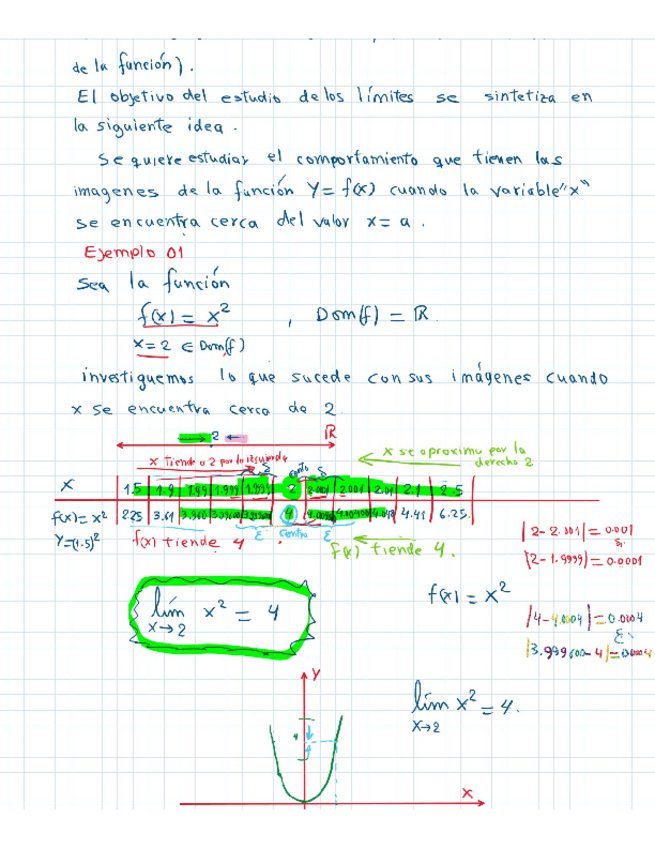 de la función).
El objetivo del estudio de los límites se sintetiza en
la siguiente idea.
Se quiere estudiar el comportamiento que tienen las
imagenes de la función Y= f(x) cuando la variable "x"
se encuentra cerca del valor x= a .
Ejemplo 01
Sea la función
f(x) = x² , Dom(f) = ℝ.
x= 2 ∈ Dom(f)
investiguemos lo que sucede con sus imágenes cuando
x se encuentra cerca de 2.
→ 2 ← ℝ
x Tiende a 2 por la izquierda
x se aproxima por la
derecha 2
δ centro δ
x 1.5 1.9 1.99 1.999 1.9999 2 2.001 2.01 2.1 2.5
f(x)= x² 2.25 3.61 4 4.41 6.25
Y=(1.5)²
f(x) tiende 4
ε centro ε
f(x) tiende 4.
|2-2.001|= 0.001
δ.
|2-1.9999|= 0.0001
lím x² = 4
x→2
f(x) = x²
|4-4.0004|=0.0004
ε
|3.999600-4|=
Y
lím x² = 4.
x→2
4
x